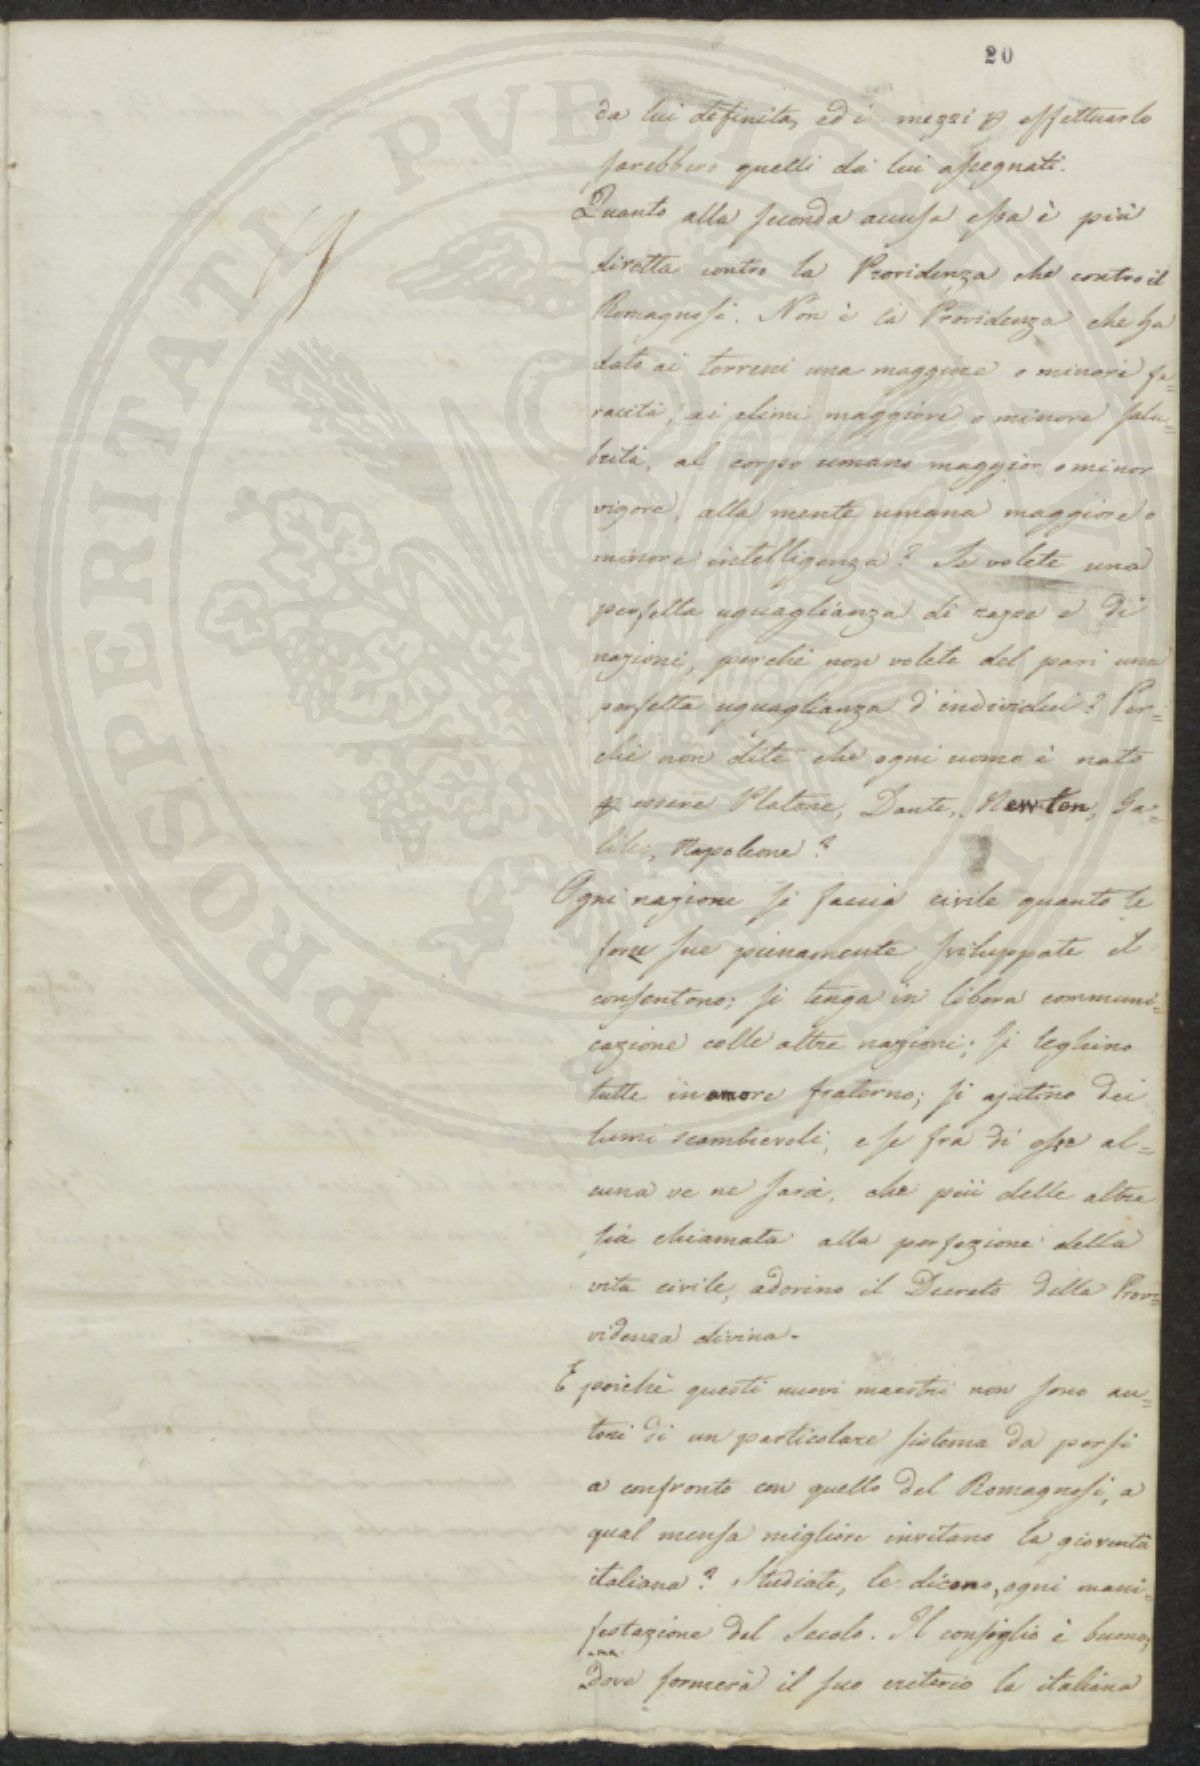 20
19
da lui definita, ed i mezzi p effettuarlo
sarebbero quelli da lui assegnati.
Quanto alla seconda accusa essa è più
diretta contro la Providenza che contro il
Romagnosi. Non è la Providenza che ha
dato ai terreni una maggiore o minore fe=
racità, ai climi maggiore o minore salu=
brità, al corpo umano maggior o minor
vigore, alla mente umana maggiore o
minore intelligenza? Se volete una
perfetta uguaglianza di razze e di
nazioni, perchè non volete del pari una
perfetta uguaglianza d'individui? Per=
chè non dite che ogni uomo è nato
p essere Platone, Dante, Newton, Ga=
lileo, Napoleone?
Ogni nazione si faccia civile quanto le
forze sue pienamente sviluppate il
consentono; si tenga in libera communi=
cazione colle altre nazioni; si leghino
tutte in amore fraterno; si ajutino dei
lumi scambievoli, e se fra di esse al=
cuna ve ne sarà, che più delle altre
sia chiamata alla perfezione della
vita civile, adorino il Decreto della Prov=
videnza divina.
E poichè questi nuovi maestri non sono au=
tori di un particolare sistema da porsi
a confronto con quello del Romagnosi, a
qual mensa migliore invitano la gioventù
italiana? Studiate, le dicono, ogni mani=
festazione del secolo. Il consiglio è buono;
ma
Dove formerà il suo criterio la italiana
PROSPERITATI PVBLICAE